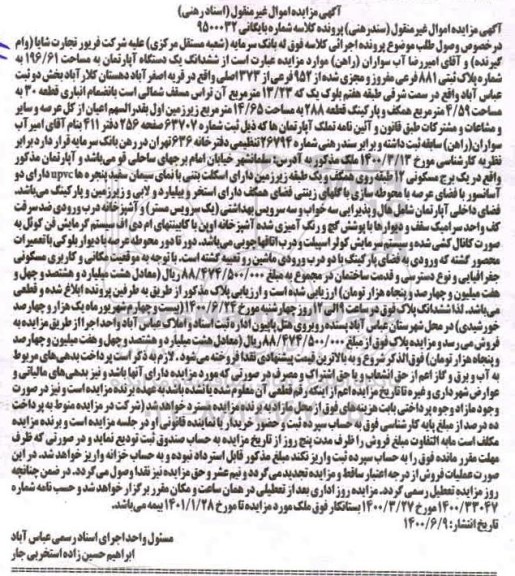 آگهی مزایده اموال غیر منقول (اسناد رهنی)
آگهی مزایده اموال غیر منقول (سند رهنی) پرونده کلاسه شماره بایگانی ۹۵۰۰۰۳۲
در خصوص وصول طلب موضوع پرونده اجرائی کلاسه فوق له بانک سرمایه (شعبه مستقل مرکزی) علیه شرکت فریور تجارت شایا (وام
گیرنده) و آقای امیررضا آب سواران (راهن) موارد مزایده عبارت است از ششدانگ یک دستگاه آپارتمان به مساحت ۱۹۶/۶۱ به
شماره پلاک ثبتی ۸۸۱ فرعی مفروز و مجزی شده از ۹۵۲ فرعی از ۳۷۳ اصلی واقع در قریه اصغرآباد دهستان کلارآباد بخش دو ثبت
عباس آباد واقع در سمت شرقی طبقه هفتم بلوک یک که ۱۳/۲۳ مترمربع آن تراس مسقف شمالی است بانضمام انباری قطعه ۳۰ به
مساحت ۴/۵۹ مترمربع همکف و پارکینگ قطعه ۲۸۸ به مساحت ۱۴/۶۵ مترمربع زیرزمین اول بقدرالسهم اعیان از کل عرصه و سایر
و مشاعات و مشترکات طبق قانون و آئین نامه تملک آپارتمان ها که ذیل ثبت شماره ۶۳۷۰۷ صفحه ۲۵۶ دفتر ۴۱۱ بنام آقای امیر آب
سواران (راهن) سابقه ثبت داشته و برابر سند رهنی شماره ۲۶۷۹۴ تنظیمی دفترخانه ۶۳۶ تهران در رهن بانک سرمایه قرار دارد برابر
نظریه کارشناسی مورخ ۱۴۰۰/۳/۱۳ ملک مذکور به آدرس: سلمانشهر خیابان امام برجهای ساحلی قو می‌باشد و آپارتمان مذکور
واقع در یک برج مسکونی ۱۲ طبقه روی همکف و یک طبقه زیرزمین دارای اسکلت بتنی با نمای سیمان سفید پنجره ها upvc دارای دو
آسانسور با فضای عرصه با محوطه سازی با گلهای زینتی فضای همکف دارای استخر و بیلیارد و لابی و زیرزمین و پارکینگ می‌باشد.
فضای داخلی آپارتمان شامل هال و پذیرایی سه خواب و سه سرویس بهداشتی (یک سرویس مستر) و آشپزخانه درب ورودی ضد سرقت
کف واحد سرامیک سقف و دیوارها با پوشش گچ و رنگ آمیزی شده آشپزخانه اوپن با کابینتهای ام دی اف سیستم گرمایش فن کوئل به
صورت کانال کشی شده و سیستم سرمایش کولر اسپیلت و درب اتاقها چوبی می‌باشد. دور تا دور محوطه عرصه با دیوار بلوکی با تعمیرات
محصور گشته که ورودی به فضای پارکینگ با دو درب ورودی ماشین رو تعبیه گشته است. با توجه به موقعیت مکانی و کاربری مسکونی
جغرافیایی و نوع دسترسی و قدمت ساختمان در مجموع به مبلغ ۸۸/۴۷۴/۵۰۰/۰۰۰ ریال (معادل هشت میلیارد و هشتصد و چهل و
هفت میلیون و چهارصد و پنجاه هزار تومان) ارزیابی شده است و ارزیابی پلاک مذکور از طریق به طرفین پرونده ابلاغ شده و قطعی
می‌باشد. لذا ششدانگ پلاک فوق در ساعت ۹ الی ۱۲ روز چهارشنبه مورخ ۱۴۰۰/۶/۲۴ (بیست و چهارم شهریور ماه یک هزار و چهارصد
خورشیدی) در محل شهرستان عباس آباد پسنده روبروی هتل پاپیون اداره ثبت اسناد و املاک عباس آباد واحد اجرا از طریق مزایده به
فروش می رسد و مزایده پلاک فوق از مبلغ ۸۸/۴۷۴/۵۰۰/۰۰۰ ریال (معادل هشت میلیارد و هشتصد و چهل و هفت میلیون و چهارصد
و پنجاه هزار تومان) فوق الذکر شروع و به بالاترین قیمت پیشنهادی نقدا فروخته می‌شود. لازم به ذکر است پرداخت بدهی‌های مربوط
به آب و برق و گاز اعم از حق انشعاب و یا حق اشتراک و مصرف در صورتی که مورد مزایده دارای آنها باشد و نیز بدهی های مالیاتی و
عوارض شهرداری و غیره تا تاریخ مزایده اعم از اینکه رقم قطعی آن معلوم شده یا نشده باشد به عهده برنده مزایده است و نیز در صورت
وجود مازاد وجوه پرداختی بابت هزینه‌های فوق از محل مازاد به برنده مزایده مسترد خواهد شد (شرکت در مزایده منوط به پرداخت
ده درصد از مبلغ پایه کارشناسی فوق به حساب سپرده ثبت و حضور خریدار یا نماینده قانونی او در جلسه مزایده است و برنده مزایده
مکلف است مابه التفاوت مبلغ فروش را ظرف مدت پنج روز از تاریخ مزایده به حساب صندوق ثبت تودیع نماید و در صورتی که ظرف
مهلت مقرر مانده فوق را به حساب سپرده ثبت واریز نکند مبلغ مذکور قابل استرداد نبوده و به حساب خزانه واریز خواهد شد. در این
صورت عملیات فروش از درجه اعتبار ساقط و مزایده تجدید می‌گردد و نیم عشر و حق مزایده نیز نقدا وصول می‌گردد. در ضمن چنانچه
روز مزایده تعطیل رسمی گردد. مزایده روز اداری بعد از تعطیلی در همان ساعت و مکان مقرر برگزار خواهد شد و حسب نامه شماره
۱۴۰۰/۳۳۰۴۷ مورخ ۱۴۰۰/۳/۲۷ بستانکار فوق ملک مورد مزایده تا مورخ ۱۴۰۱/۱/۲۸ بیمه می‌باشد.
تاریخ انتشار: ۱۴۰۰/۶/۹
مسئول واحد اجرای اسناد رسمی عباس آباد
ابراهیم حسین زاده استخربی جار